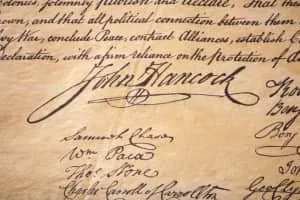 solemnly Publish and Declare, That the
own, and that all political connection between them
vy War, conclude Peace, contract Alliances, establish C
eclaration, with a firm reliance on the protection of
John Hancock
Samuel Chase
Wm Paca
Thos Stone
Charles Carroll of Carrollton
Benj
Benj
Geo Cly